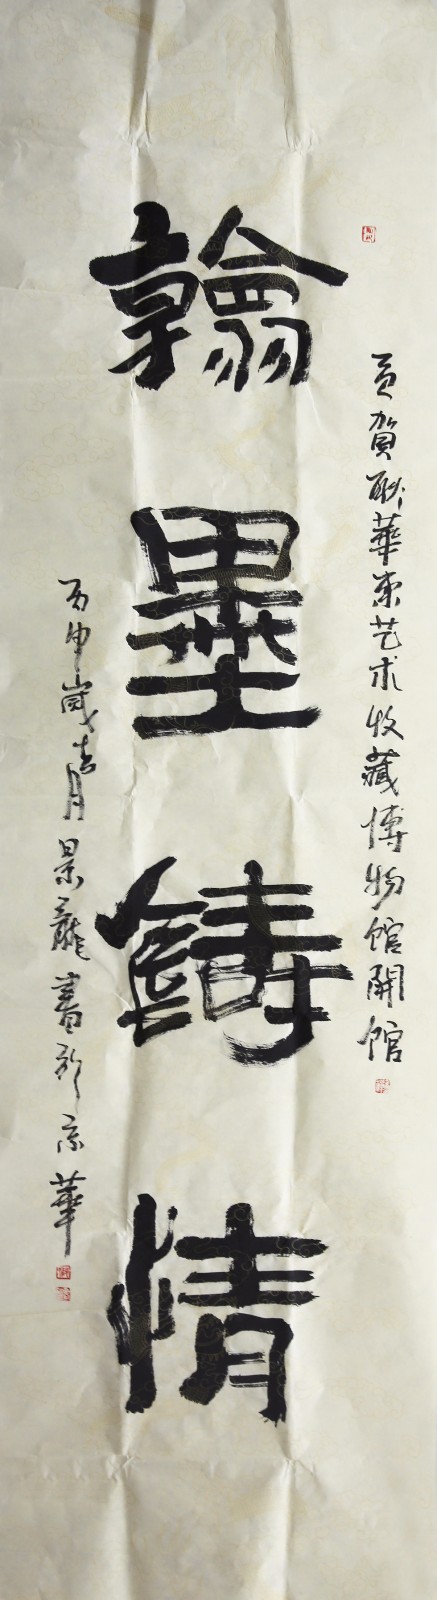 賀聯華东艺术收藏博物馆開馆
翰墨鑄情
丙申歲吉月景龍書於京華